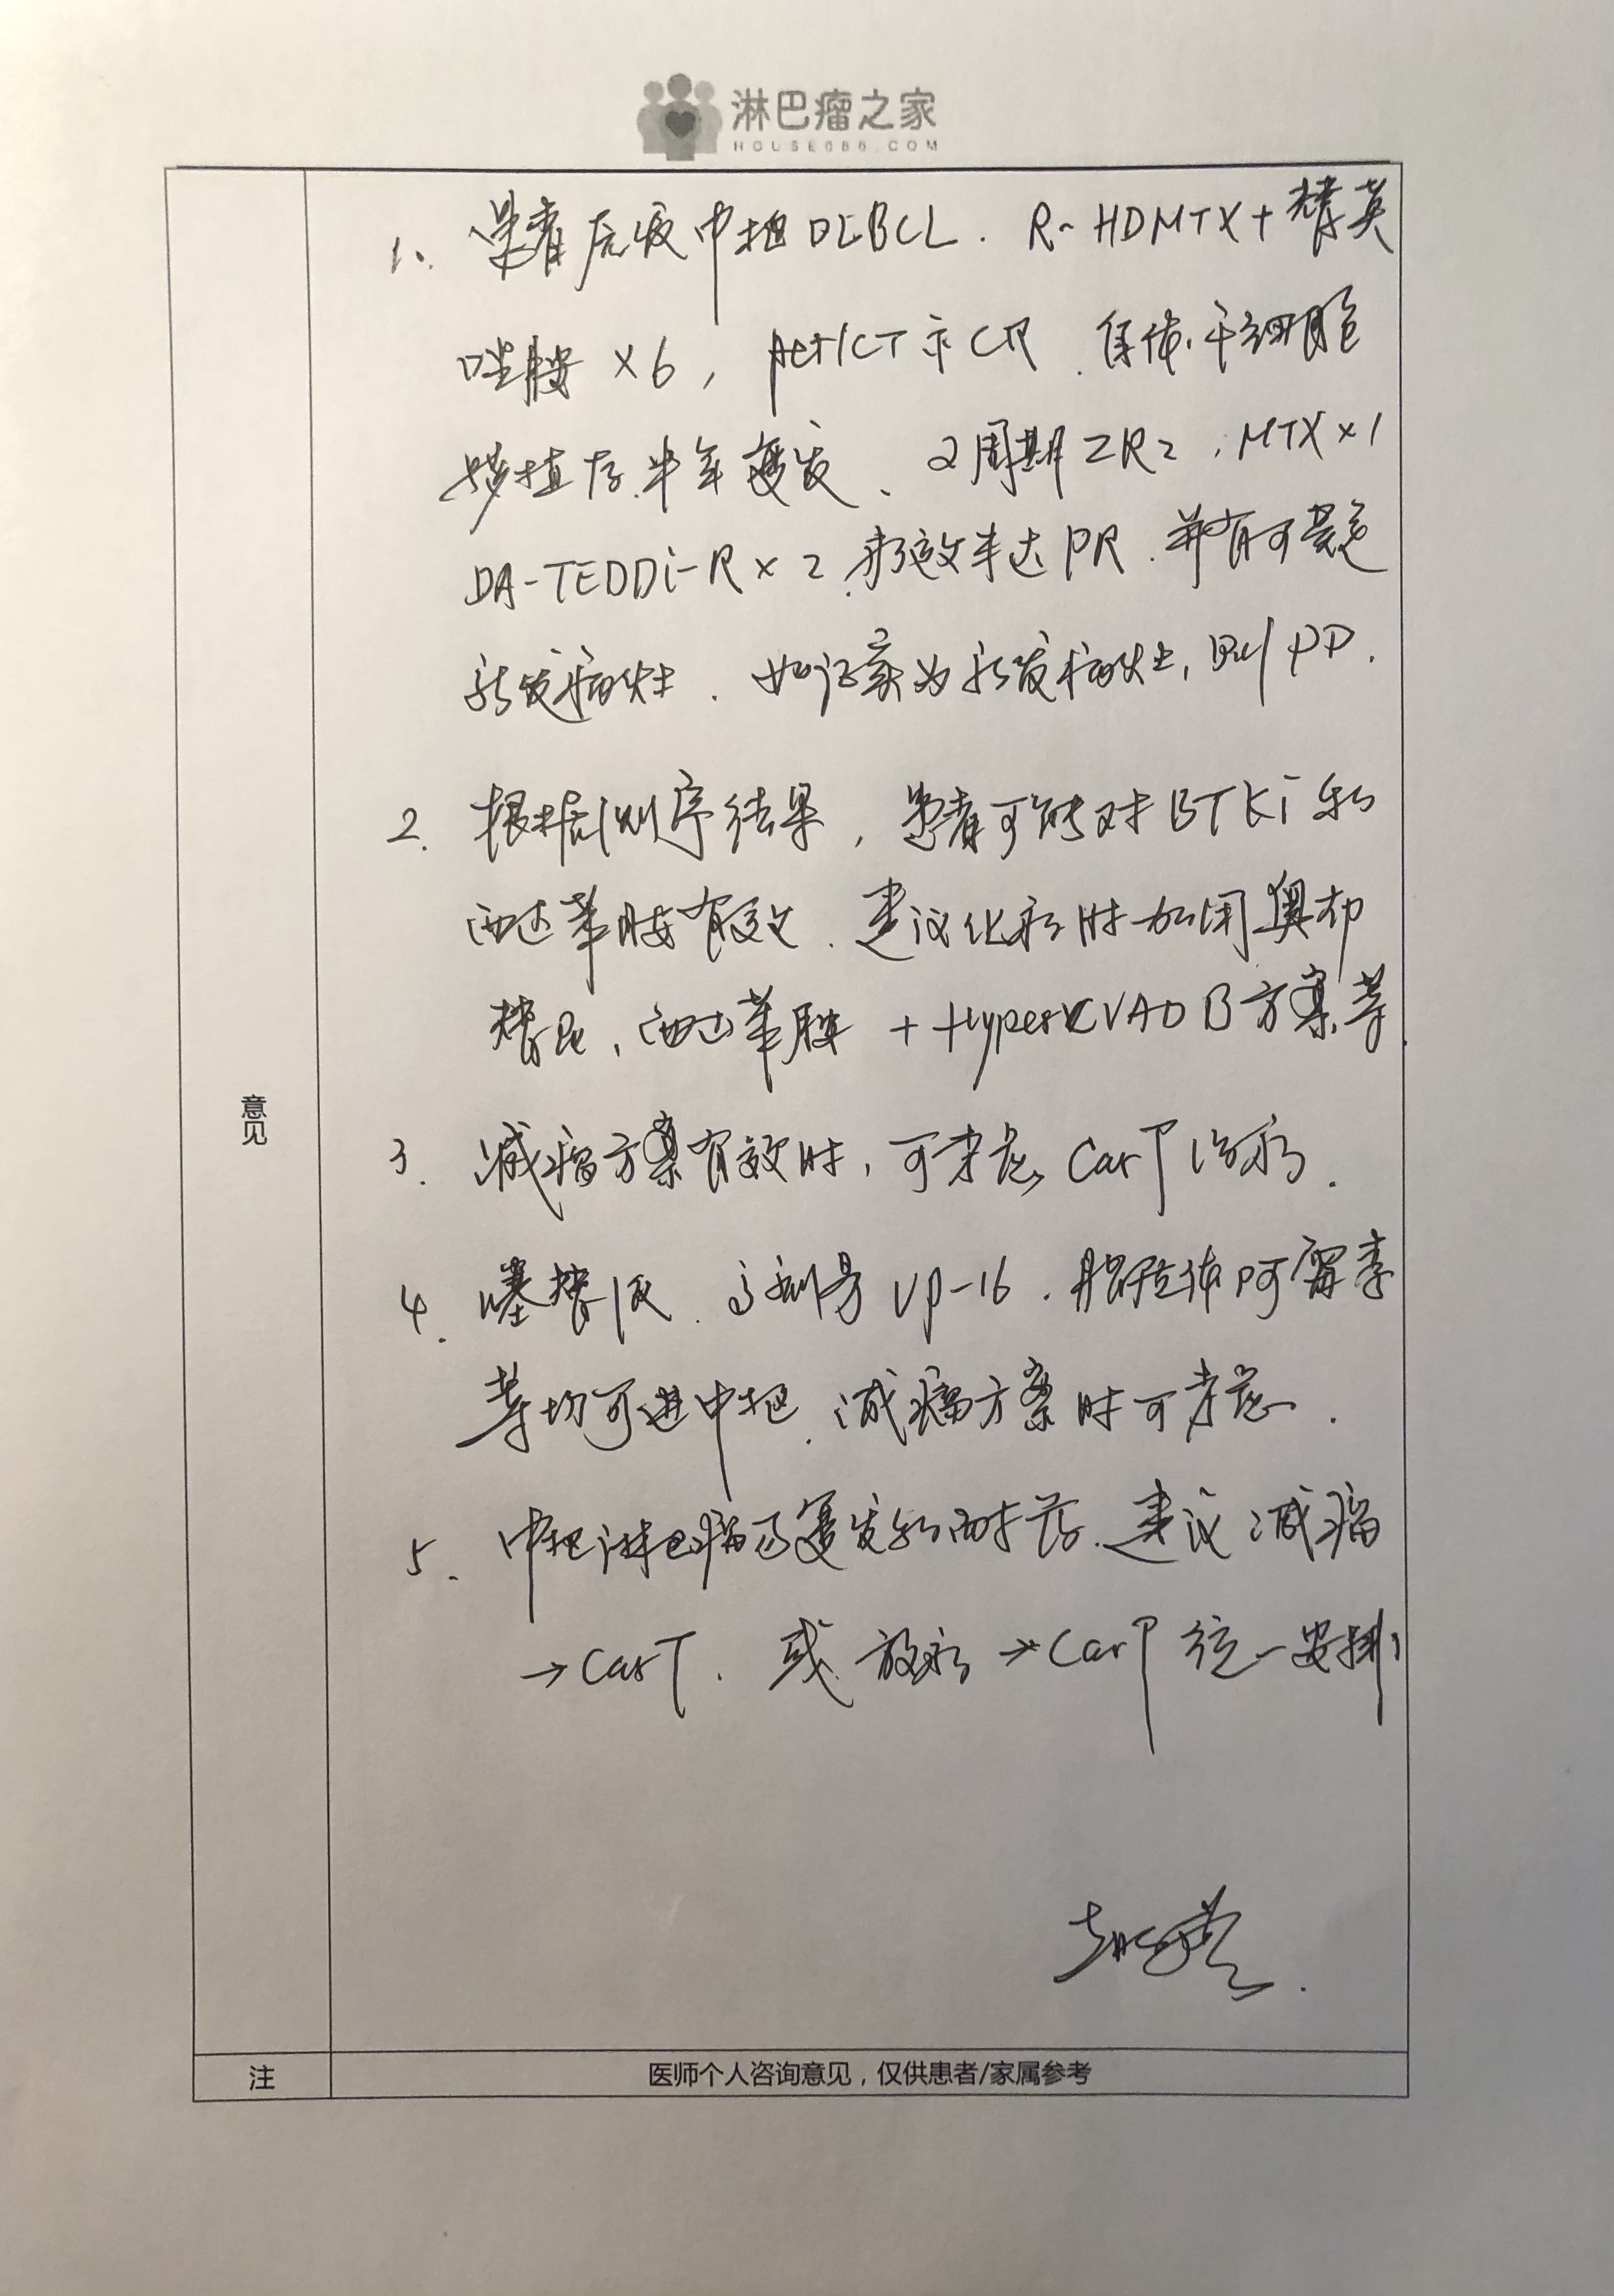 淋巴瘤之家
HOUSE086.COM
1、患者原发中枢DLBCL. R-HDMTX+替莫
唑胺×6, pet/CT示CR. 自体干细胞
移植后半年复发、2周期ZR2, MTX×1
DA-TEDDi-R×2.疗效未达PR.并有可疑
新发病灶. 如证实为新发病灶,则PD.
2. 根据测序结果,患者可能对BTKi和
西达苯胺有效.建议化疗时加用奥布
替尼、西达苯胺+HyperCVAD B方案等
意见
3. 减瘤方案有效时,可考虑CarT治疗.
4. 噻替派. 高剂量VP-16.脂质体阿霉素
等均可进中枢.减瘤方案时可考虑.
5. 中枢淋巴瘤易复发和耐药.建议减瘤
→CarT.或放疗→CarT统一安排
注
医师个人咨询意见,仅供患者/家属参考